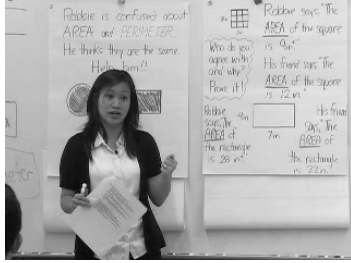 Robbie is confused about
AREA and PERIMETER.
He thinks they are the same.
Help him!!
Robbie says, "The
AREA of the square
is 9in²."
His friend says, "The
AREA of the square
is 12in."
Who do you
agree with
and why?
Prove it!
Robbie
says, "The
AREA of
the rectangle
is 28 in²."
7in
His friend
says, "The
AREA of
the rectangle
is 22in."
meter